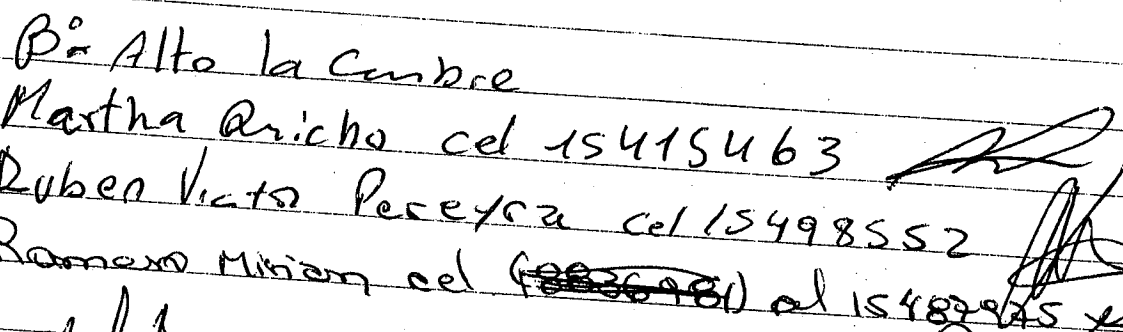 B° Alto la Cumbre
Martha Qricho cel 15415463
Ruben Victor Pereyra cel 15498552
Romero Miriam cel al 15487975